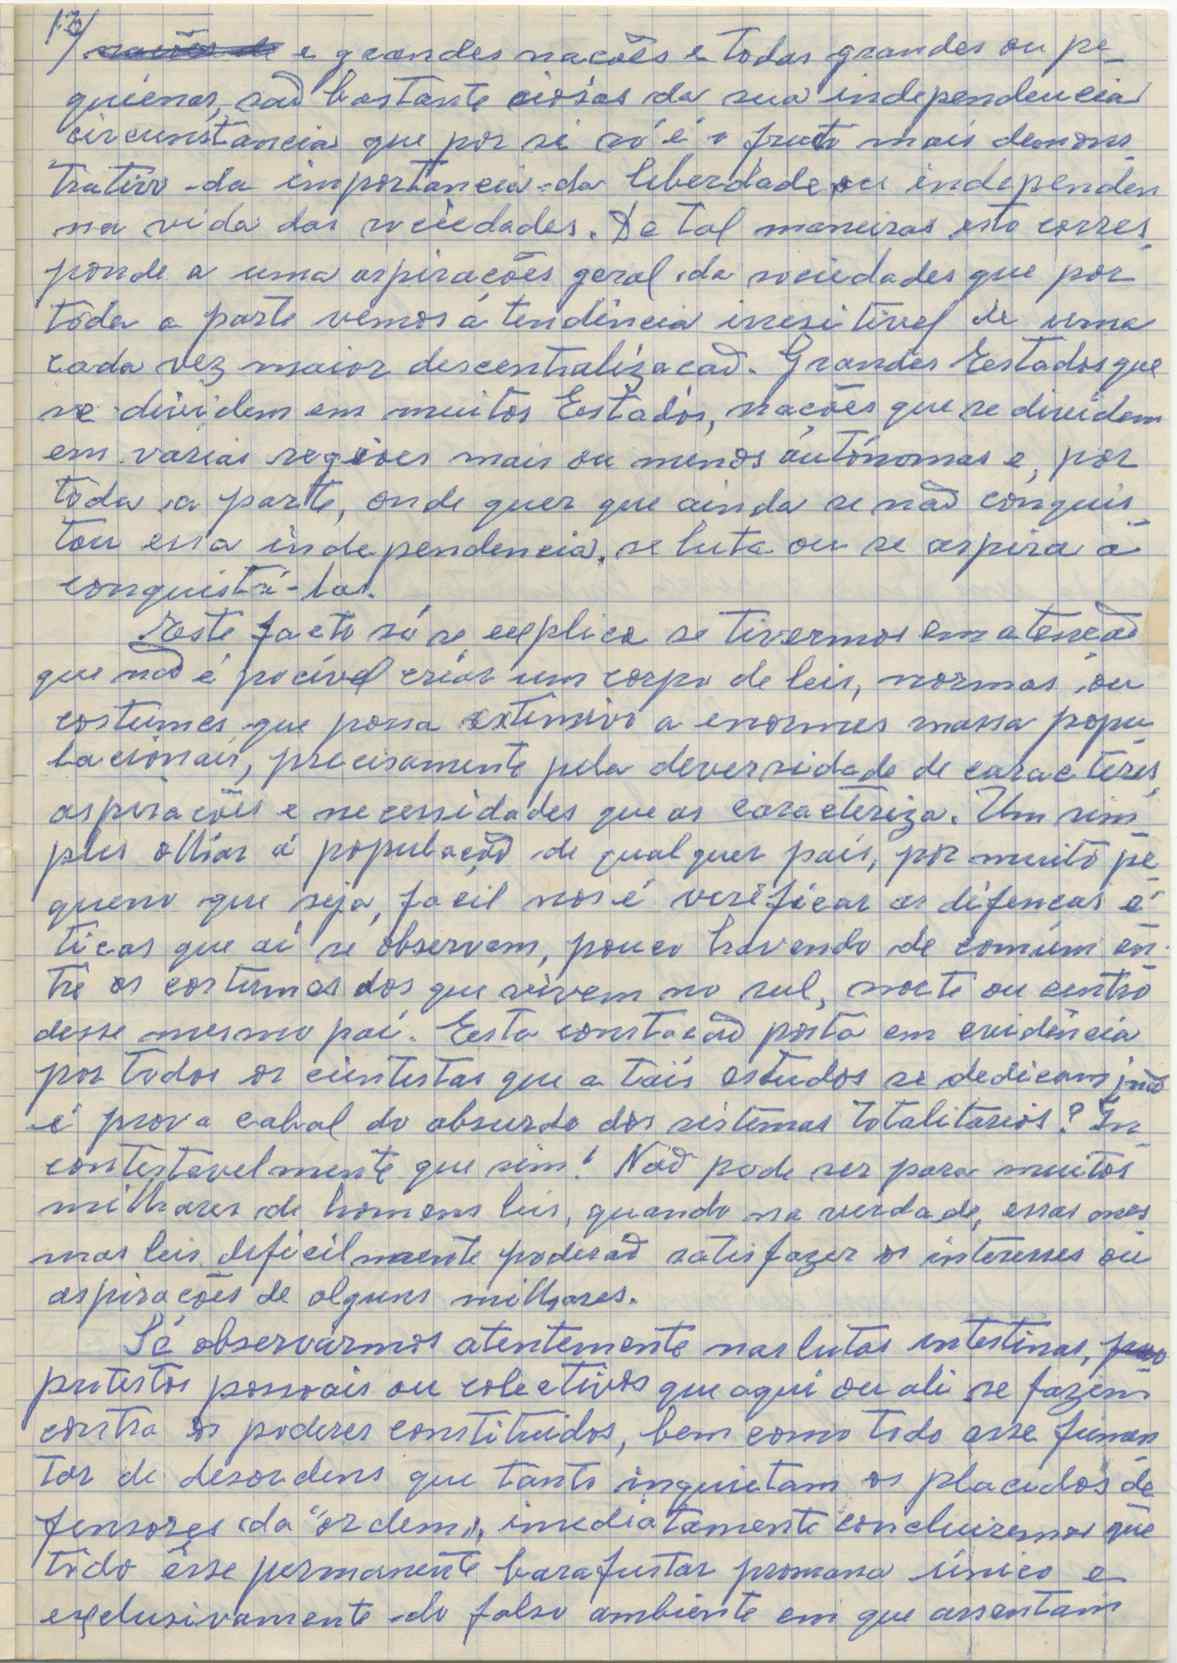 13/
e grandes nações e todas grandes ou pe-
quenas, saõ bastante ciósas da sua independencia
circunstancia que por si só é o fructo mais demons-
trativo da importancia da liberdade ou independen
na vida das sociedades. De tal maneiras esto corres-
ponde a uma aspirações geral da sociedades que por
toda a parte vemos á tendência irresitivel de uma
cada vez maior descentralizacaõ. Grandes Estados que
se dividem em muitos Estados, nações que se dividem
em varias regiões mais ou menos autónomas e, por
toda a parte, onde quer que ainda se naõ conquis-
tou essa independencia, se luta ou se aspira á
conquistá-la.
Este facto só se explica se tivermos em atencaõ
que naõ é pocível criar um corpo de leis, normas ou
costumes que possa extensivo a enormes massa popu-
lacionais, precisamente pela deversidade de caractéres,
aspirações e necessidades que as caracteriza. Um sim-
ples olhar á populaçaõ de qualquer país, por muito pe-
queno que seja, facil nos é verificar as difencas é-
ticas que aí se observem, pouco havendo de comúm en-
tre os costumes dos que vivem no sul, norte ou centro
desse mesmo paí. Esta constacaõ posta em evidência
por todos os cientestas que a tais estudos se dedicam, naõ
é prova cabal do absurdo dos sistemas totalitarios? In-
contestavelmente que sim! Naõ pode ser para muitos
milhares de homens leis, quando na verdade, essas mes-
mas leis deficilmente poderaõ satisfazer os interesses ou
aspirações de alguns milhares.
Sé observármos atentemente nas lutas intestinas,
protestos pessoais ou colectivos que aqui ou ali se fazem
contra os poderes constituidos, bem como todo esse fumen-
tar de desordens que tanto inquietam os placidos de-
fensores da "ordem", imediatamente concluiremos que
todo êsse permanente barafustar promana único e
exclusivamente do falso ambiente em que assentam